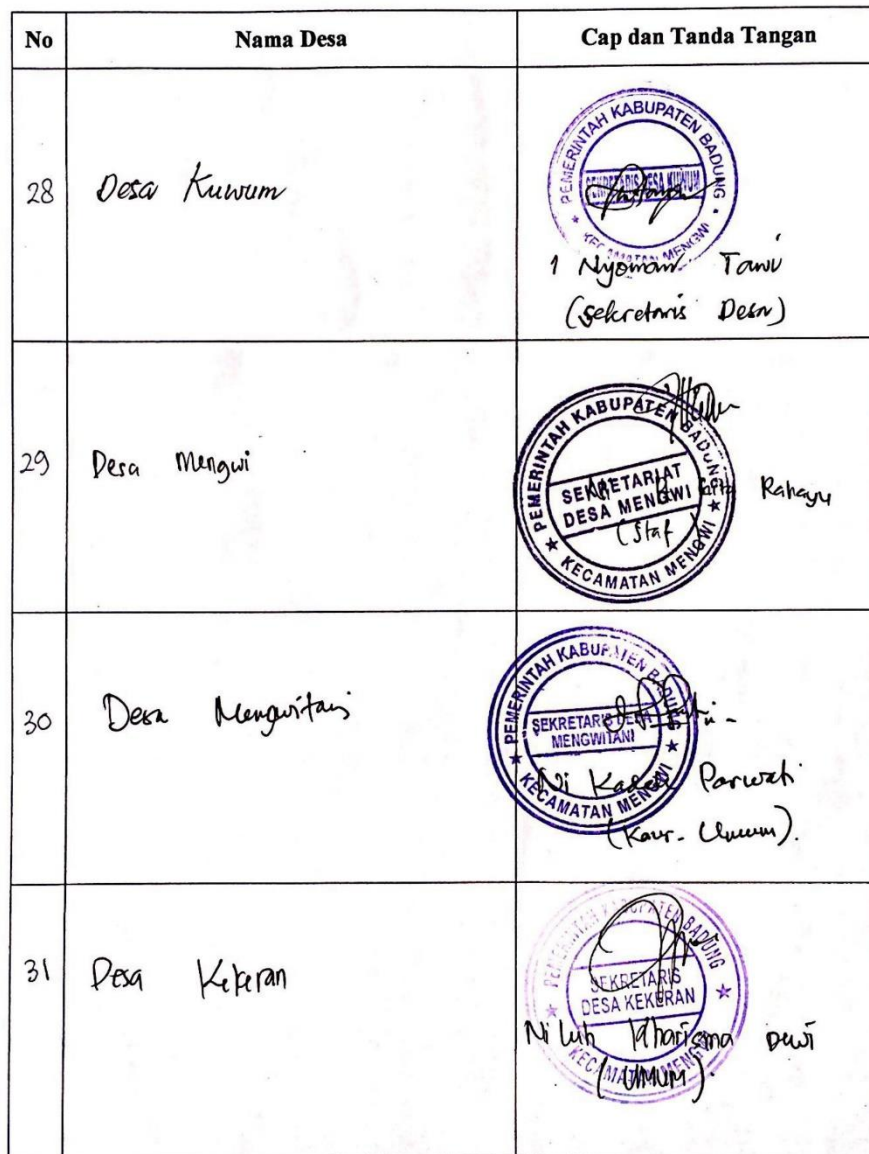 No Nama Desa Cap dan Tanda Tangan
28 Desa Kuwum
PEMERINTAH KABUPATEN BADUNG
SEKRETARIS DESA KUWUM
KECAMATAN MENGWI
I Nyoman Tawi
(Sekretaris Desa)
29 Desa Mengwi
PEMERINTAH KABUPATEN BADUNG
SEKRETARIAT
DESA MENGWI
Rahayu
(Staf)
KECAMATAN MENGWI
30 Desa Mengwitani
PEMERINTAH KABUPATEN BADUNG
SEKRETARIS DESA
MENGWITANI
KECAMATAN MENGWI
Ni Kadek Parwati
(Kaur. Umum).
31 Desa Kekeran
PEMERINTAH KABUPATEN BADUNG
SEKRETARIS
DESA KEKERAN
KECAMATAN MENGWI
Ni Luh Kharisma Dewi
(UMUM).